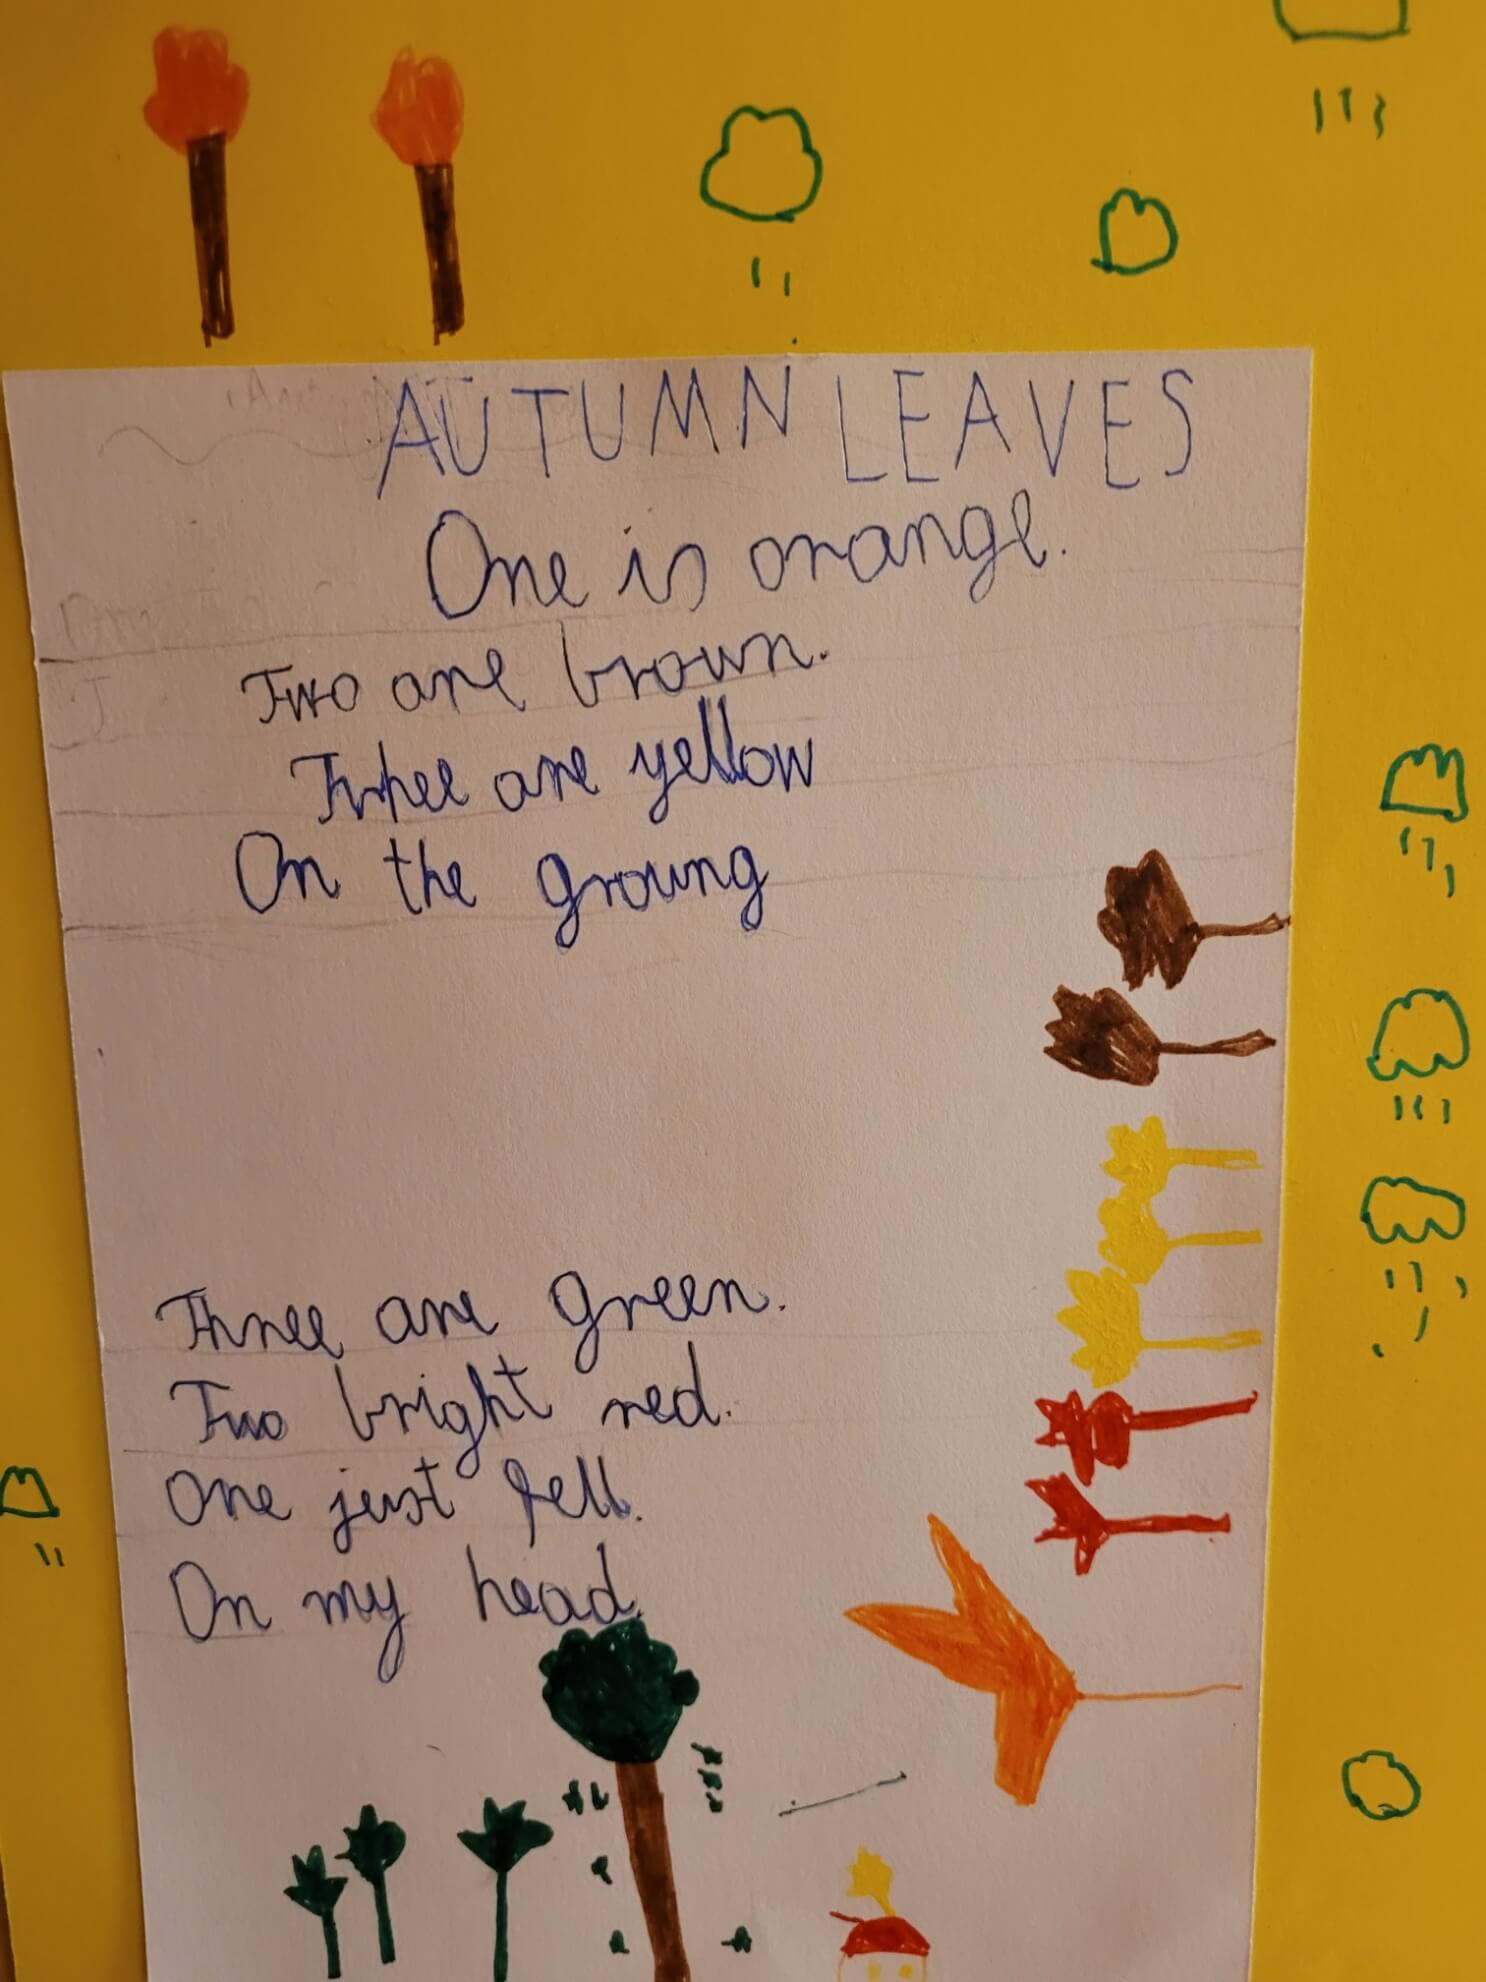 AUTUMN LEAVES
One is orange.
Two are brown.
Three are yellow
On the groung
Three are green.
Two bright red.
One just fell.
On my head.